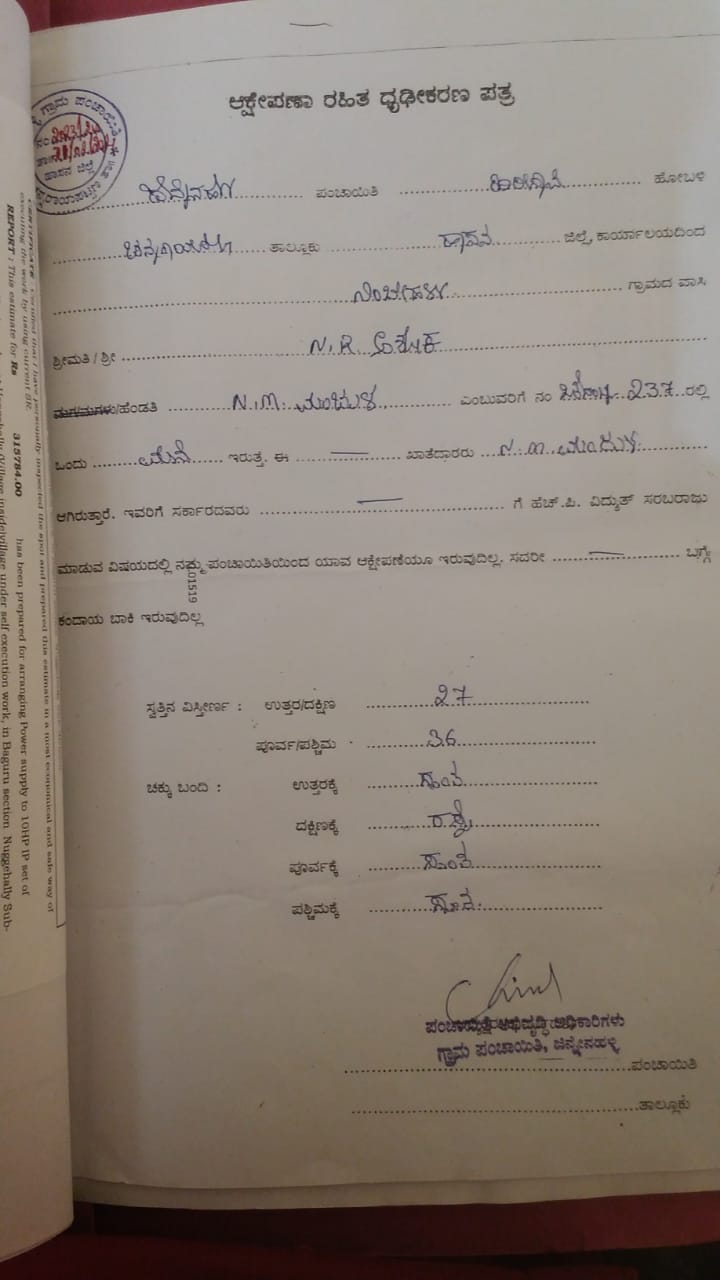 ಆಕ್ಷೇಪಣಾ ರಹಿತ ಧೃಢೀಕರಣ ಪತ್ರ
ಗ್ರಾಮ ಪಂಚಾಯಿತಿ
ಹಾಸನ ಜಿಲ್ಲೆ
ಪಂಚಾಯಿತಿ ಹೋಬಳಿ
ತಾಲ್ಲೂಕು ಹಾಸನ ಜಿಲ್ಲೆ, ಕಾರ್ಯಾಲಯದಿಂದ
ಗ್ರಾಮದ ವಾಸಿ
ಶ್ರೀಮತಿ / ಶ್ರೀ N.R. ಅಶೋಕ
ಮಗ/ಮಗಳು/ಹೆಂಡತಿ N.M. ಮಂಜುಳ ಎಂಬುವರಿಗೆ ನಂ 237 ರಲ್ಲಿ
ಒಂದು ಮನೆ ಇರುತ್ತ. ಈ — ಖಾತೆದಾರರು N.M. ಮಂಜುಳ
ಆಗಿರುತ್ತಾರೆ. ಇವರಿಗೆ ಸರ್ಕಾರದವರು — ಗೆ ಹೆಚ್.ಪಿ. ವಿದ್ಯುತ್ ಸರಬರಾಜು
ಮಾಡುವ ವಿಷಯದಲ್ಲಿ ನಮ್ಮ ಪಂಚಾಯಿತಿಯಿಂದ ಯಾವ ಆಕ್ಷೇಪಣೆಯೂ ಇರುವುದಿಲ್ಲ. ಸದರೀ — ಬಗ್ಗೆ
01519
ಕಂದಾಯ ಬಾಕಿ ಇರುವುದಿಲ್ಲ
ಸ್ವತ್ತಿನ ವಿಸ್ತೀರ್ಣ : ಉತ್ತರ/ದಕ್ಷಿಣ 27
ಪೂರ್ವ/ಪಶ್ಚಿಮ 36
ಚಕ್ಕು ಬಂದಿ : ಉತ್ತರಕ್ಕೆ ಸ್ವಂತ
ದಕ್ಷಿಣಕ್ಕೆ ರಸ್ತೆ
ಪೂರ್ವಕ್ಕೆ ಸ್ವಂತ
ಪಶ್ಚಿಮಕ್ಕೆ
ಪಂಚಾಯಿತಿ ಅಭಿವೃದ್ಧಿ ಅಧಿಕಾರಿಗಳು
ಗ್ರಾಮ ಪಂಚಾಯಿತಿ, ಜಿನ್ನೇನಹಳ್ಳಿ
ಪಂಚಾಯಿತಿ
ತಾಲ್ಲೂಕು
CERTIFICATE : Certified that I have personally inspected the spot and prepared this estimate in a most economical and safe way of
executing the work by using current SR.
REPORT : This estimate for Rs 315784.00 has been prepared for arranging Power supply to 10HP IP set of
village under self execution work, in Baguru section Nuggehally Sub-